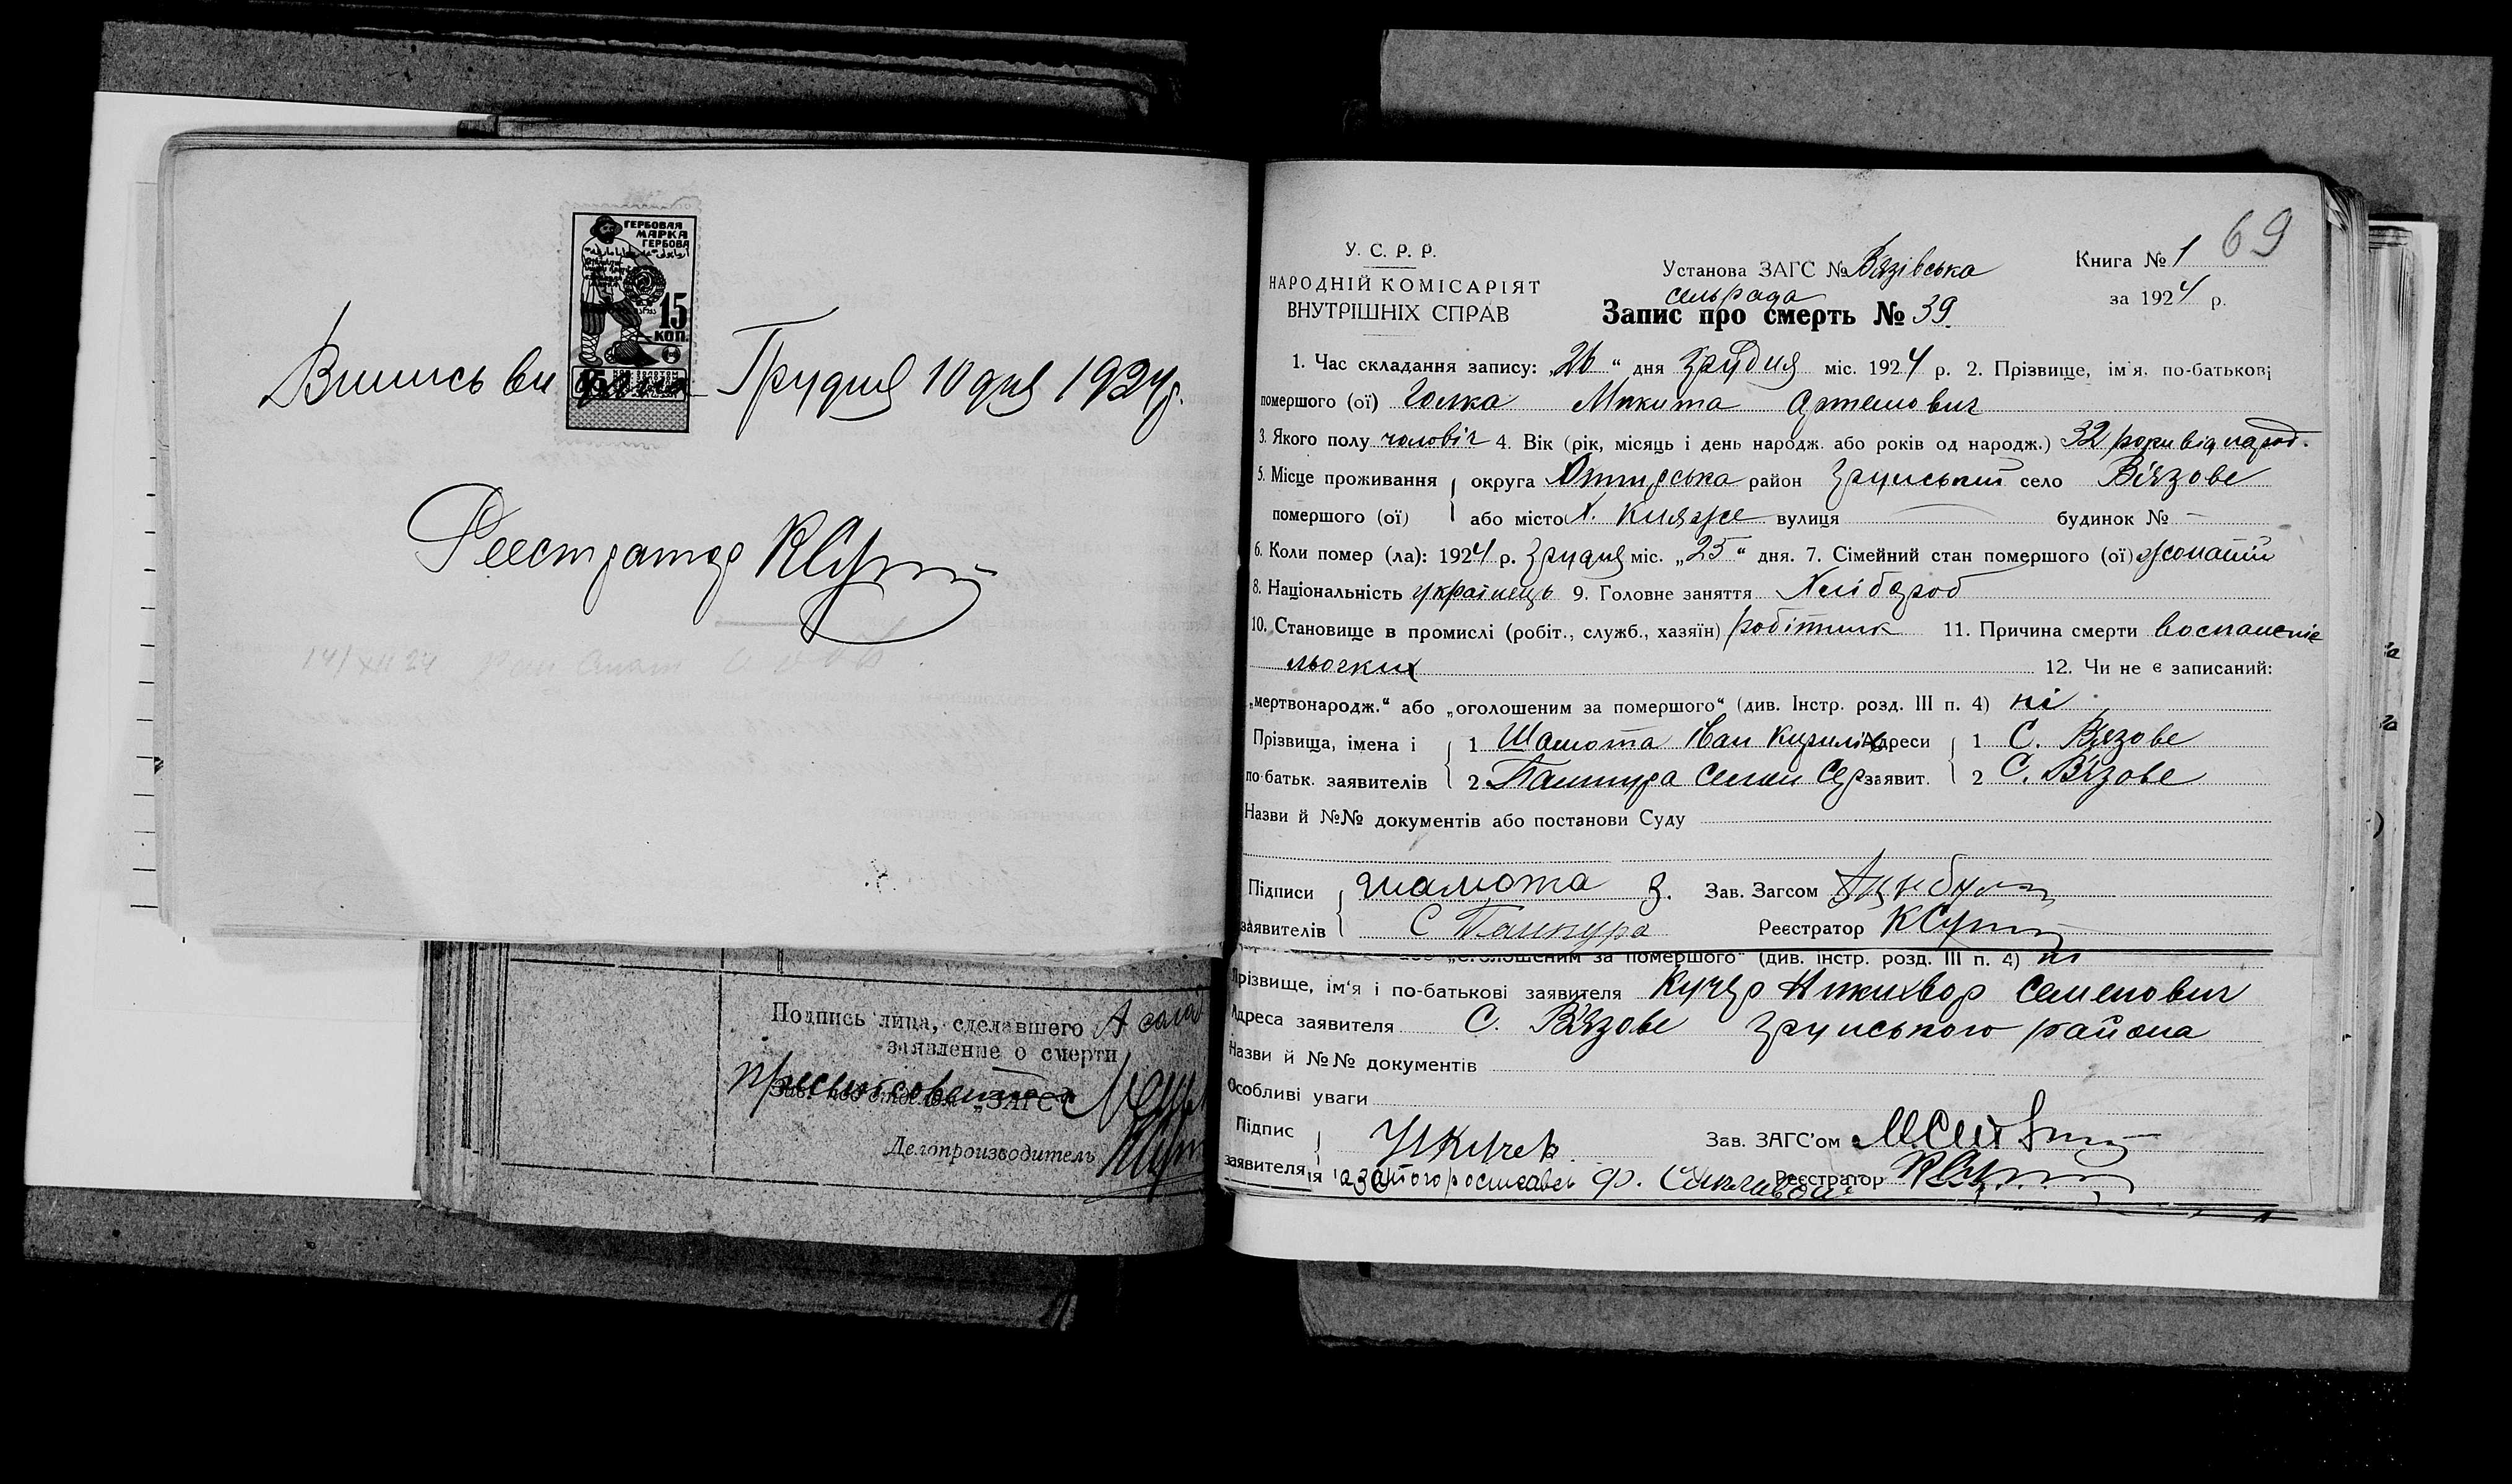 ГЕРБОВАЯ
МАРКА
ГЕРБОВА
15
КОП.
Виписъ ви Грудня 10 дня 1924р.
Реєстратор КСуп
14/XII 24
Подпись лица, сделавшего
заявление о смерти
„ЗАГС“
Делопроизводитель
69
У. С. Р. Р.
НАРОДНІЙ КОМІСАРІЯТ
ВНУТРІШНІХ СПРАВ
Установа ЗАГС № Вязівська
сельрада
Запис про смерть № 39
Книга № 1
за 1924 р.
1. Час складання запису: „26“ дня грудня міс. 1924 р. 2. Прізвище, ім'я. по-батькові
помершого (ої) Голка Микита Артемович
3. Якого полу чоловіч 4. Вік (рік, місяць і день народж. або років од народж.) 32 роки від народ.
5. Місце проживання округа Охтирська район Грунський село Вязове
помершого (ої) або місто Х. Княже вулиця — будинок № —
6. Коли помер (ла): 1924 р. Грудня міс. „25“ дня. 7. Сімейний стан помершого (ої) жонатий
8. Національність українець 9. Головне заняття Хлібороб
10. Становище в промислі (робіт., служб., хазяїн) робітник 11. Причина смерти воспаленіє
льогких 12. Чи не є записаний:
„мертвонародж.“ або „оголошеним за помершого“ (див. Інстр. розд. III п. 4) ні
Прізвища, імена і 1 Шамота Іван Кирилів Адреси 1 С. Вязове
по-батьк. заявителів 2 Семен заявит. 2 С. Вязове
Назви й №№ документів або постанови Суду
Підписи шамота Зав. Загсом
заявителів С Реєстратор КСуп
„оголошеним за помершого“ (див. інстр. розд. III п. 4) ні
Прізвище, ім'я і по-батькові заявителя Кучер Никихвор Семенович
Адреса заявителя С. Вязове Грунського района
Назви й №№ документів
Особливі уваги
Підпис Зав. ЗАГС'ом
заявителя Реєстратор